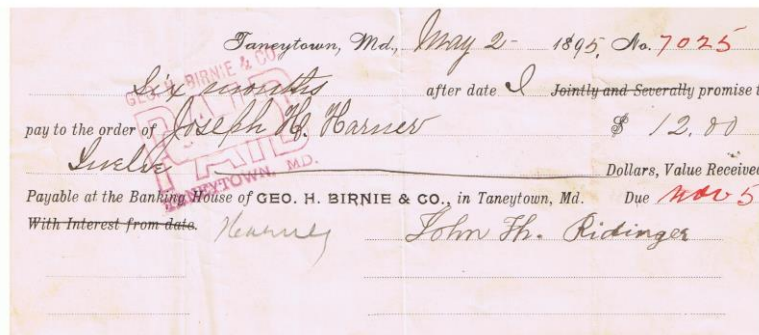 Taneytown, Md., May 2 - 1895, No. 7025
Six months after date I Jointly and Severally promise t
pay to the order of Joseph H. Harner $ 12.00
Twelve Dollars, Value Received
Payable at the Banking House of GEO. H. BIRNIE & CO., in Taneytown, Md. Due Nov 5
With Interest from date. John Th. Ridinger
GEO. H. BIRNIE & CO.
PAID
TANEYTOWN, MD.